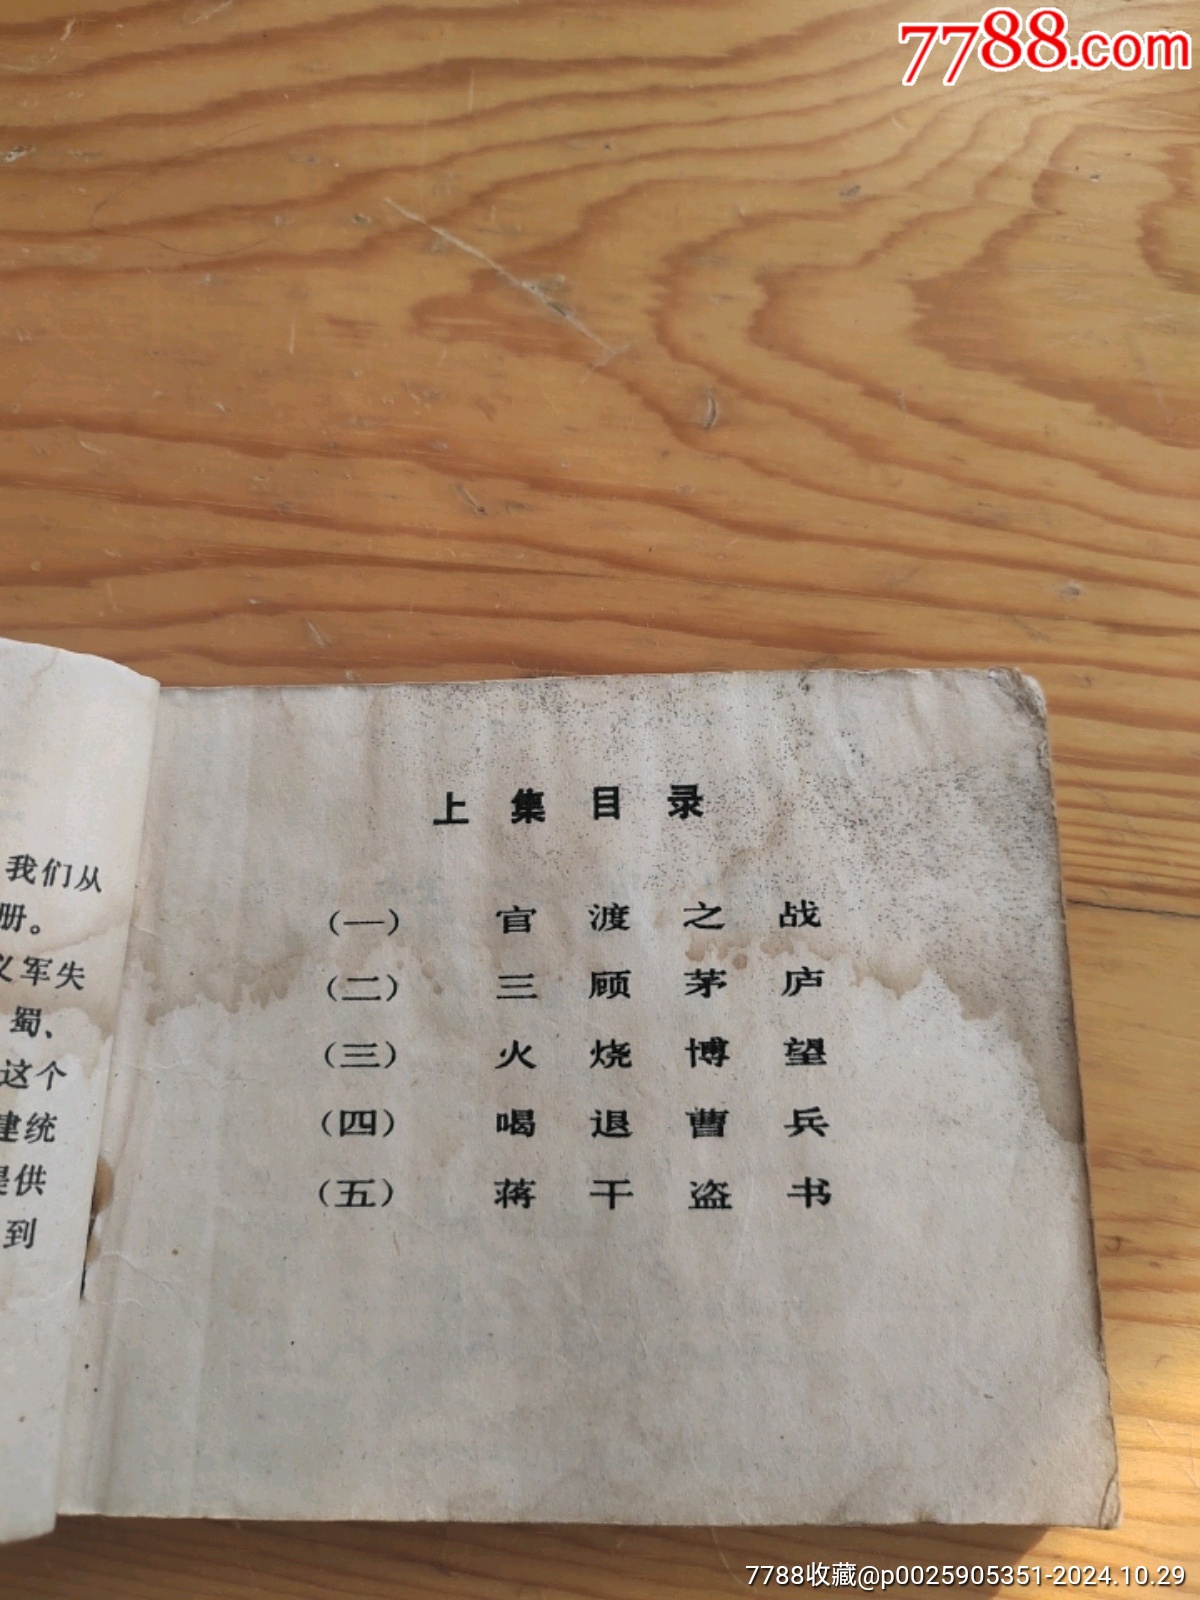 7788.com
我们从
册。
义军失
蜀、
这个
建统
提供
到
上集目录
（一） 官渡之战
（二） 三顾茅庐
（三） 火烧博望
（四） 喝退曹兵
（五） 蒋干盗书
7788收藏@p0025905351-2024.10.29